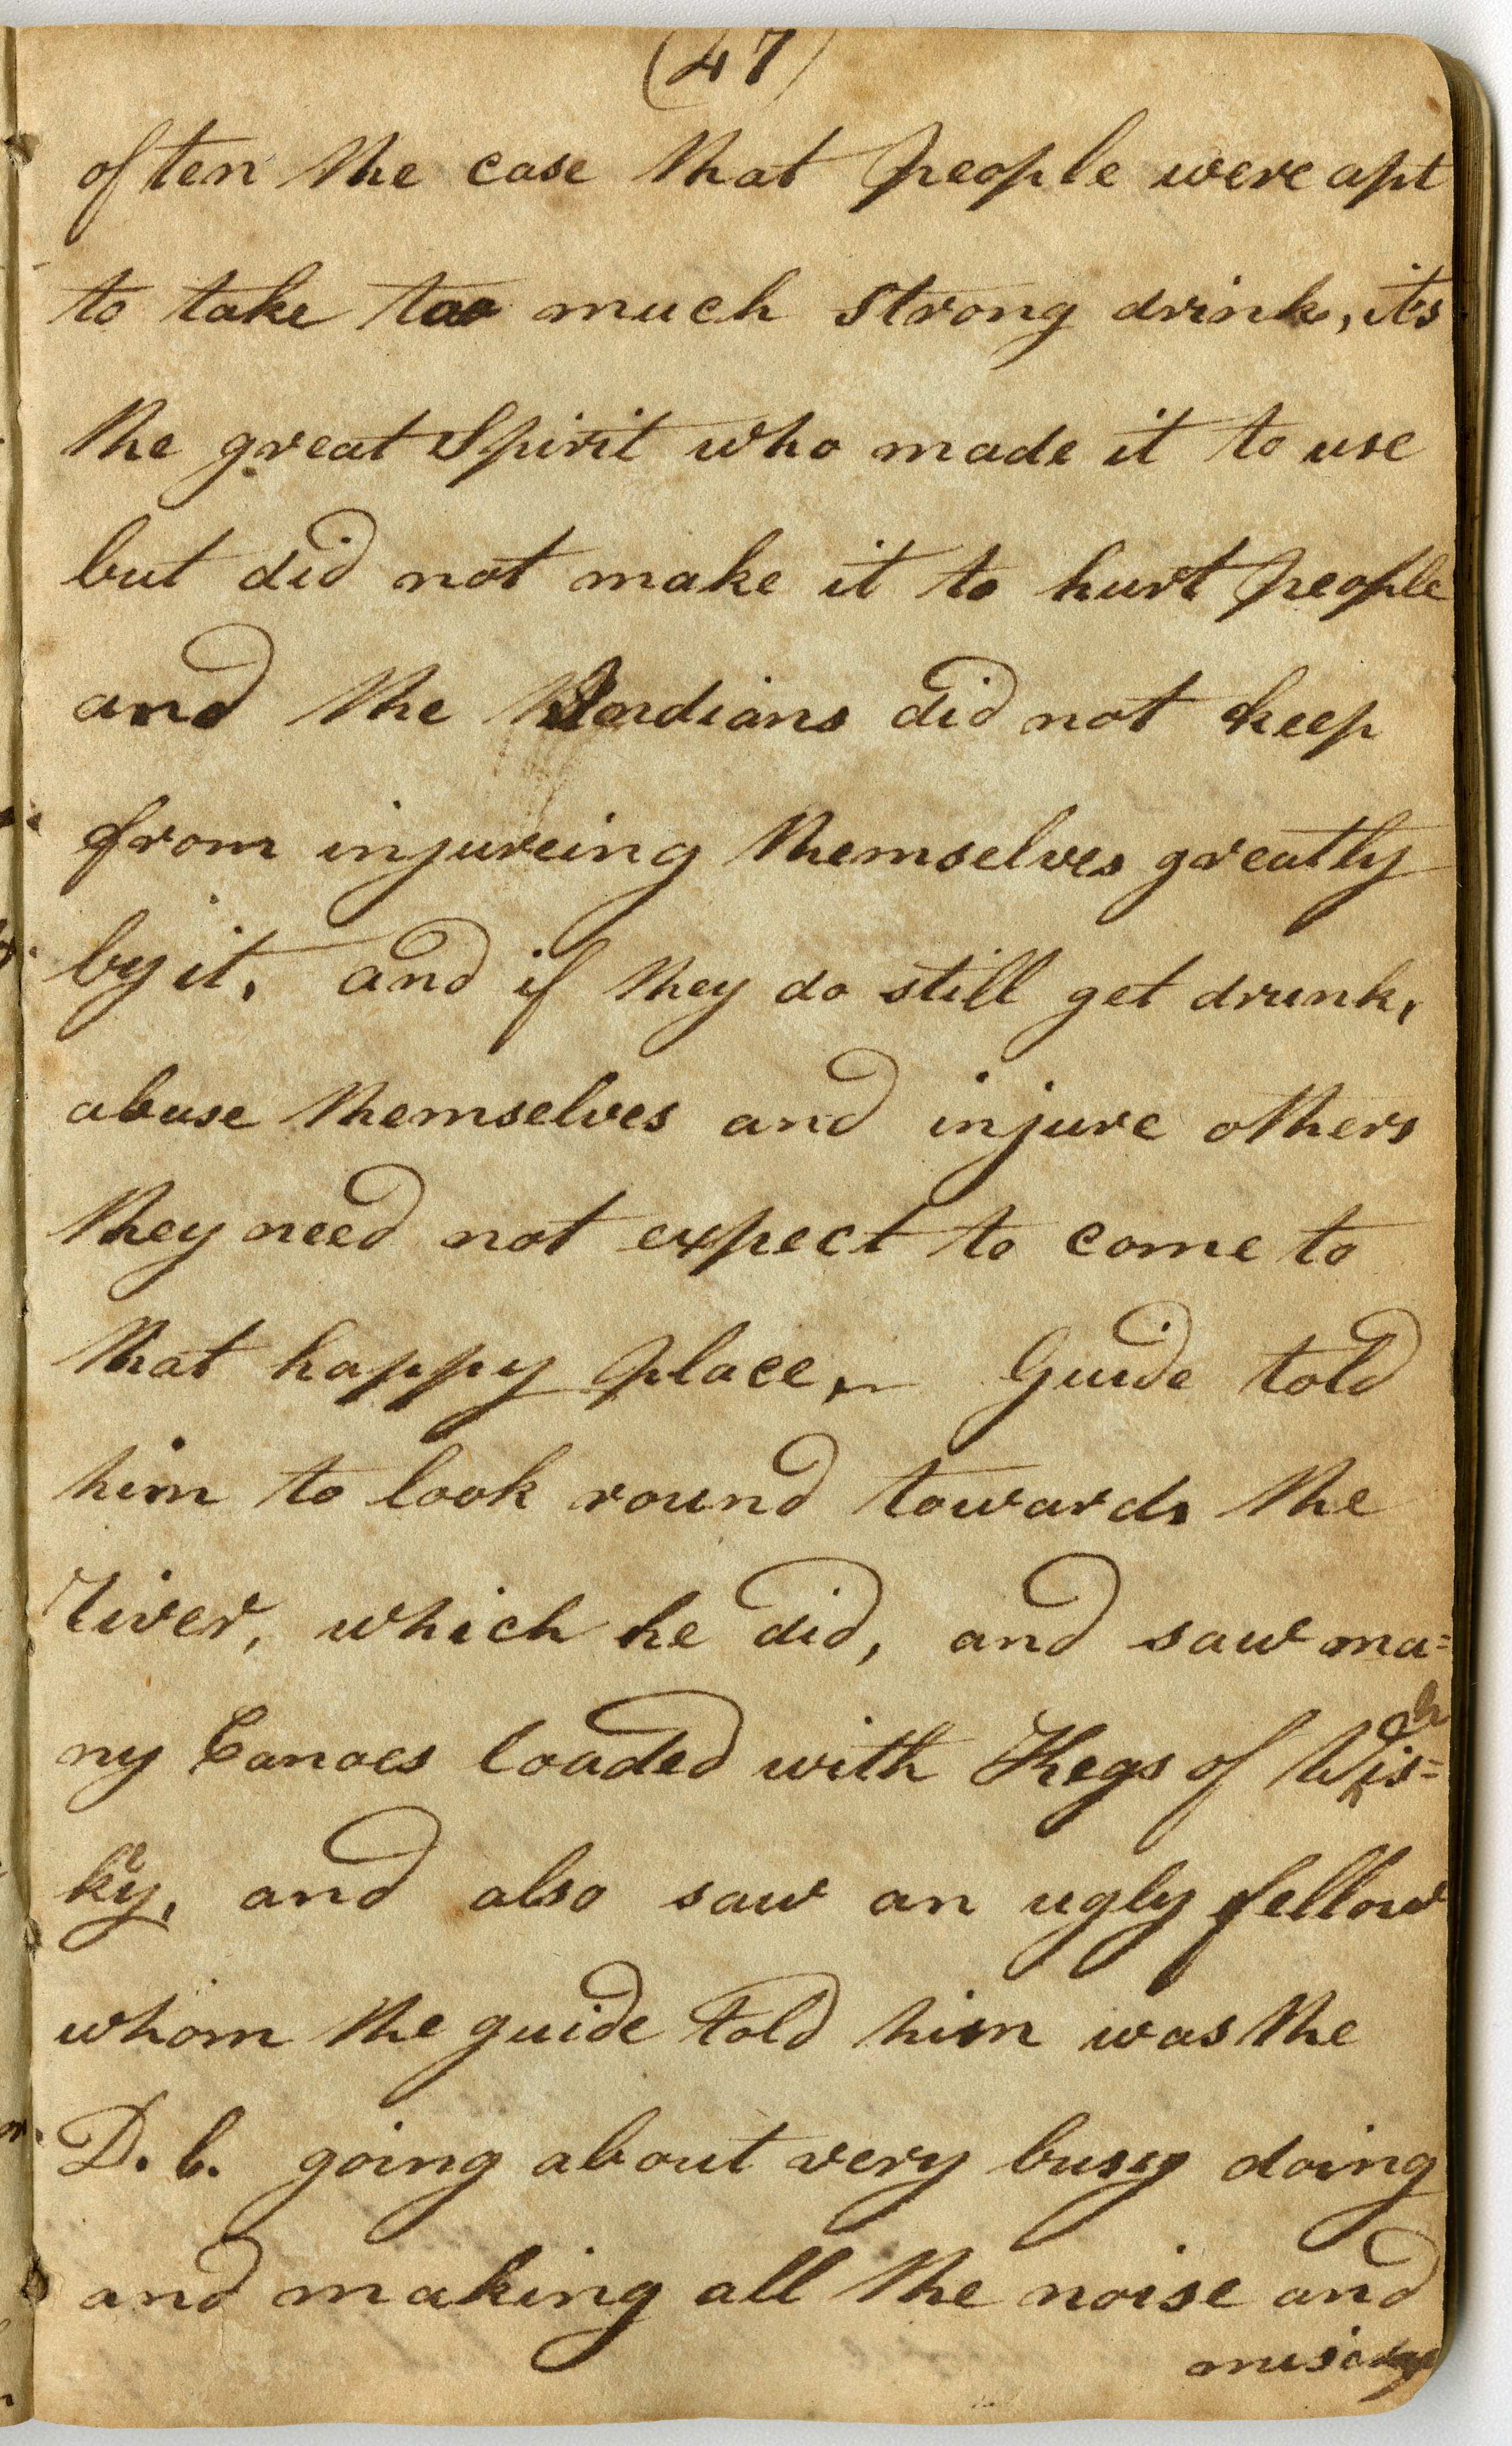 (47)
often the case that people were apt
to take too much strong drink, its
the great Spirit who made it to use
but did not make it to hurt people
and the Indians did not keep
from injureing themselves greatly
by it, and if they do still get drunk,
abuse themselves and injure others
they need not expect to come to
that happy place, Guide told
him to look round towards the
River, which he did, and saw ma=
ny Canoes loaded with Kegs of Whis=
key, and also saw an ugly fellow
whom the guide told him was the
D.b. going about very busy doing
and making all the noise and